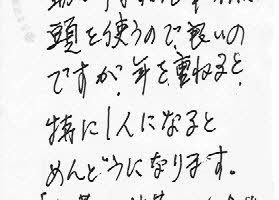 頭を使うので、良いの
ですが、年を重ねると、
特に1人になると
めんどうになります。